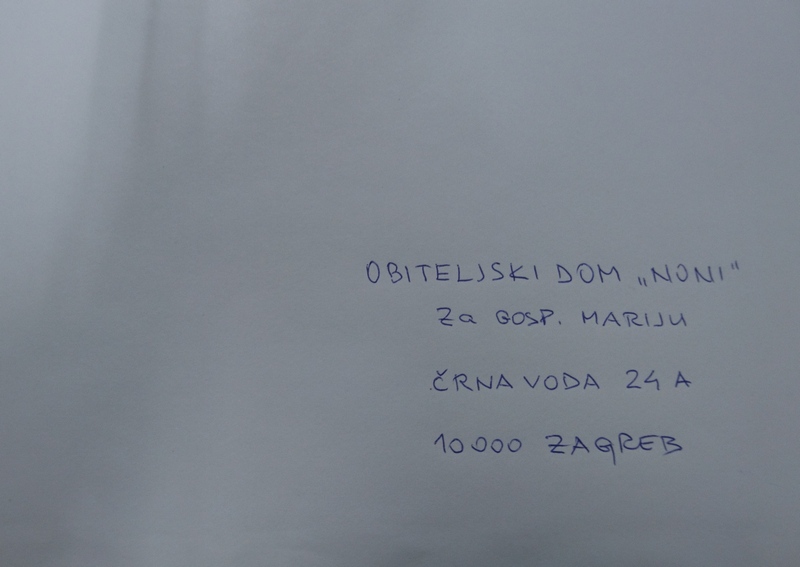 OBITELJSKI DOM „NONI"
Za GOSP. MARIJU
ČRNA VODA 24 A
10000 ZAGREB